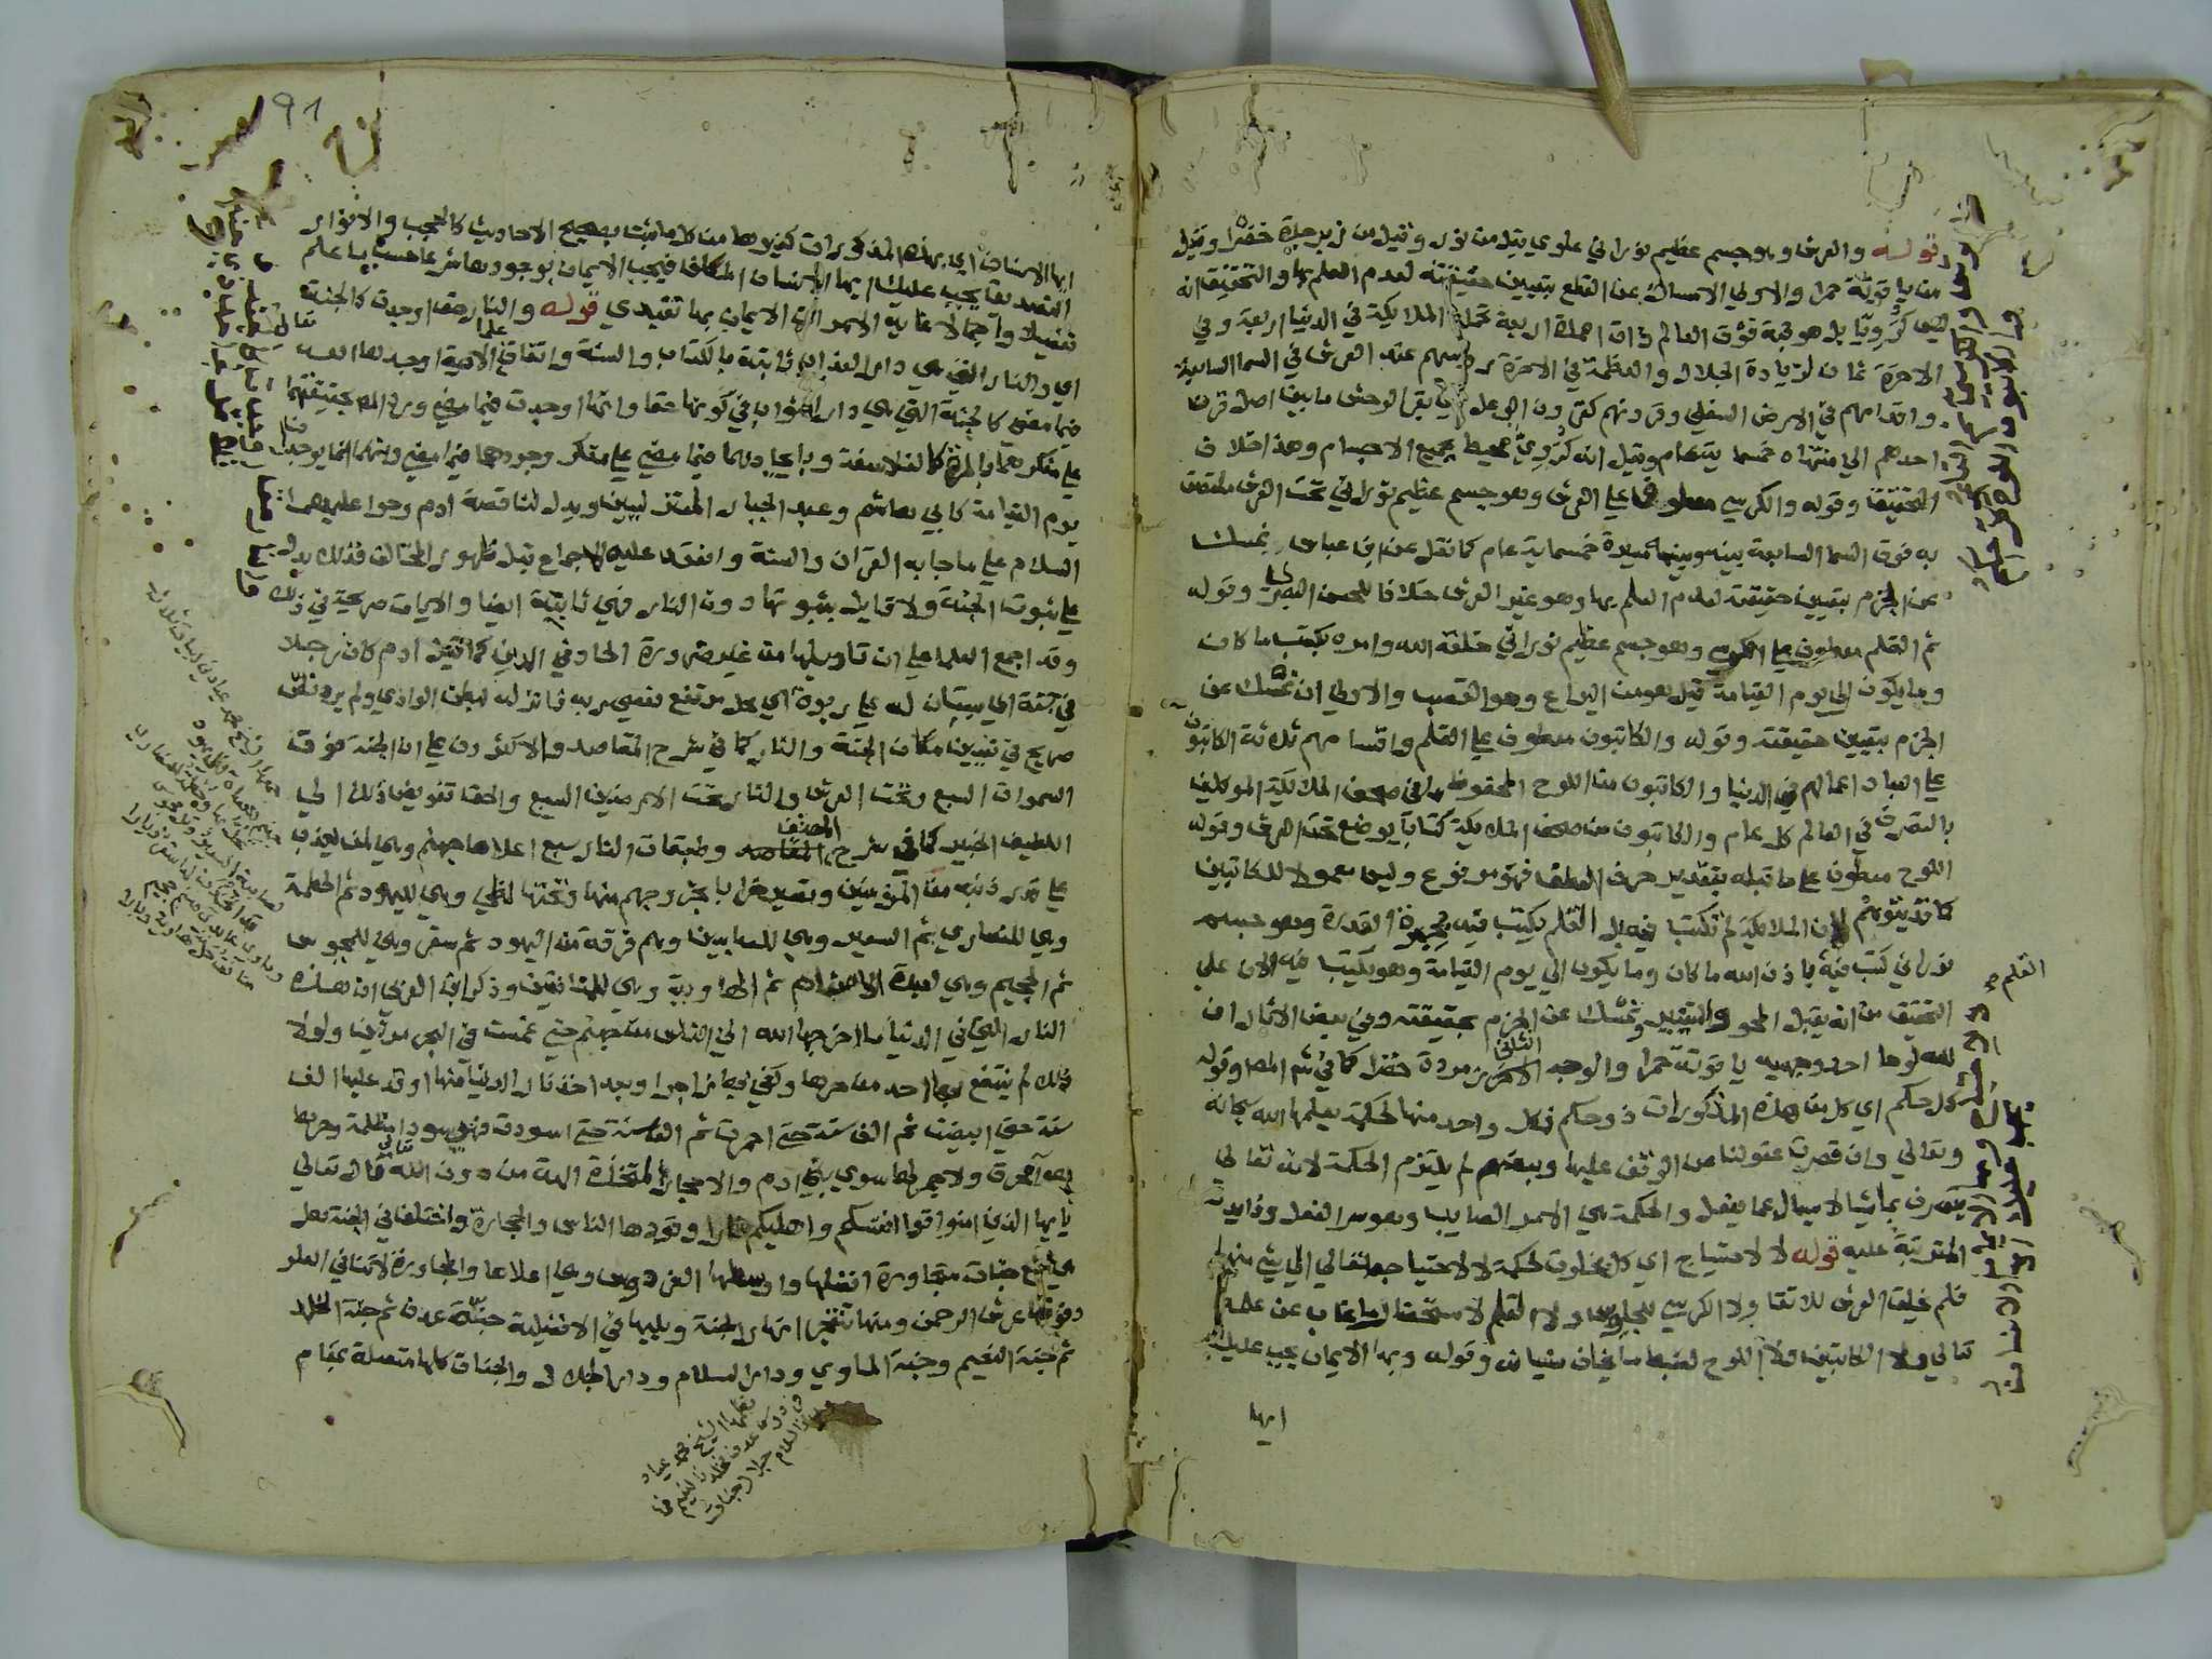 قوله والعرش وهو جسم عظيم نوراني علوي قيل من نور وقيل من زبرجدة خضرا وقيل
من ياقوتة حمرا والاولي الامساك عن القطع بتعيين حقيقته لعدم العلم بها والتحقيق انه
ليس كرويا بل هو قبة فوق العالم ذات اعمدة اربعة تحمله الملايكة في الدنيا اربعة وفي
الاخرة ثمان لزيادة الجلال والعظمة في الاخرة رءوسهم عند العرش في السما السابعة
واقدامهم في الارض السفلي وقرونهم كقرون الوعل اي بقر الوحش ما بين اصل قرن
احدهم الي منتهاه خمسماية عام وقيل انه كروي محيط بجميع الاجسام وهذا خلاف
التحقيق وقوله والكرسي معطوف علي العرش وهو جسم عظيم نوراني تحت العرش ملتصق
به فوق السما السابعة بينه وبينها مسيرة خمسماية عام كما نقل عن ابن عباس ونمسك
عن الجزم بتعيين حقيقته لعدم العلم بها وهو غير العرش خلافا للحسن البصري وقوله
ثم القلم معطوف علي الكرسي وهو جسم عظيم نوراني خلقه الله وامره بكتب ما كان
وما يكون الي يوم القيامة قيل هو من اليراع وهو القصب والاولي ان نمسك عن
الجزم بتعيين حقيقته وقوله والكاتبون معطوف علي القلم واقسامهم ثلاثة الكاتبون
علي العباد اعمالهم في الدنيا والكاتبون من اللوح المحفوظ ما في صحف الملايكة الموكلين
بالتصرف في العالم كل عام والكاتبون من صحف الملايكة كتابا يوضع تحت العرش وقوله
اللوح معطوف علي ما قبله بتقدير حرف العطف فهو مرفوع وليس معمولا للكاتبين
كما قد يتوهم لان الملايكة لم تكتب فيه بل القلم يكتب فيه بمجرد القدرة وهو جسم
نوراني كتب فيه القلم باذن الله ما كان وما يكون الي يوم القيامة وهو يكتب فيه الان علي
التحقيق من انه يقبل المحو والتغيير ونمسك عن الجزم بحقيقته وفي بعض الاثار ان
لله لوحا احد وجهيه ياقوتة حمرا والوجه الثاني زمردة خضرا كما في شرح المص وقوله
كل حكم اي كل من هذه المذكورات ذو حكم فكل واحد منها لحكمة يعلمها الله سبحانه
وتعالي وان قصرت عقولنا عن الوقف عليها وبعضهم لم يلتزم الحكمة لانه تعالي
يتصرف بما يشا لا يسال عما يفعل والحكمة هي الامر الصايب وهو سر الفعل وفايدته
المترتبة عليه قوله لا لاحتياج اي كل مخلوق لحكمة لا لاحتياجه تعالي الي شي منها
فلم يخلق العرش للارتقا ولا الكرسي للجلوس ولا القلم لاستحضار ما غاب عن علمه
تعالي ولا الكاتبين ولا اللوح لضبط ما يخاف نسيانه وقوله وبها الايمان يجب عليك
ايها
91
ايها الانسان اي بهذه المذكورات كغيرها من كل ما ثبت بصحيح الاحاديث كالحجب والانوار
التصديق يجب عليك ايها الانسان المكلف فيجب الايمان بوجودها شرعا حسب ما علم
تفصيلا واجمالا غاية الامر ان الايمان بها تقييدي قوله والنار حق اوجدت كالجنة
اي والنار التي هي دار العذاب ثابتة بالكتاب والسنة واتفاق علما الامة اوجدها الله تعالي
فيما مضي كالجنة التي هي دار الثواب في كونها حقا وانها اوجدت فيما مضي ورد المص بحقيقتهما
علي منكرهما بالمرة كالفلاسفة وبايجادهما فيما مضي علي منكر وجودهما فيما مضي وانهما انما يوجدان
يوم القيامة كابي هاشم وعبد الجبار المعتزليين ويدل لنا قصة ادم وحوا عليهما
السلام علي ما جا به القران والسنة وانعقد عليه الاجماع قبل ظهور المخالف فذلك يدل
علي ثبوت الجنة ولا قايل بثبوتها دون النار فهي ثابتة ايضا والايات صريحة في ذلك
وقد اجمع العلما علي ان تاويلها من غير ضرورة الحاد في الدين كما قيل ادم كان رجلا
في جنة اي بستان له علي ربوة اي محل مرتفع فعصي ربه فانزله لبطن الوادي ولم يرد نص
صريح في تعيين مكان الجنة والنار كما في شرح المقاصد والاكثرون علي ان الجنة فوق
السموات السبع وتحت العرش والنار تحت الارضين السبع والحق تفويض ذلك الي
اللطيف الخبير كما في شرح المصنف وطبقات النار سبع اعلاها جهنم وهي لمن يعذب
علي قدر ذنبه من المؤمنين وتصير خرابا بخروجهم منها وتحتها لظي وهي لليهود ثم الحطمة
وهي للنصاري ثم السعير وهي للصابيين وهم فرقة من اليهود ثم سقر وهي للمجوس
ثم الجحيم وهي لعبدة الاصنام ثم الهاوية وهي للمنافقين وذكر ابن العربي ان هذه
النار التي في الدنيا ما اخرجها الله الي الناس من جهنم حتي غمست في البحر مرتين ولولا
ذلك لم ينتفع بها احد من حرها وكفي بها زاجرا وبعد اخذ نار الدنيا منها اوقد عليها الف
سنة حتي ابيضت ثم الف سنة حتي احمرت ثم الف سنة حتي اسودت فهي سودا مظلمة وحرها
هوا محرق ولا جمر لها سوي بني ادم والاحجار المتخذة الهة من دون الله تعالي قال تعالي
يا ايها الذين امنوا قوا انفسكم واهليكم نارا وقودها الناس والحجارة واختلف في الجنة هل
هي سبع جنات متجاورة افضلها واوسطها الفردوس وهي اعلاها والمجاورة لا تنافي العلو
وفوقها عرش الرحمن ومنها تتفجر انهار الجنة ويليها في الافضلية جنة عدن ثم جنة الخلد
ثم جنة النعيم وجنة الماوي ودار السلام ودار الجلال والجنات كلها متصلة بمقام